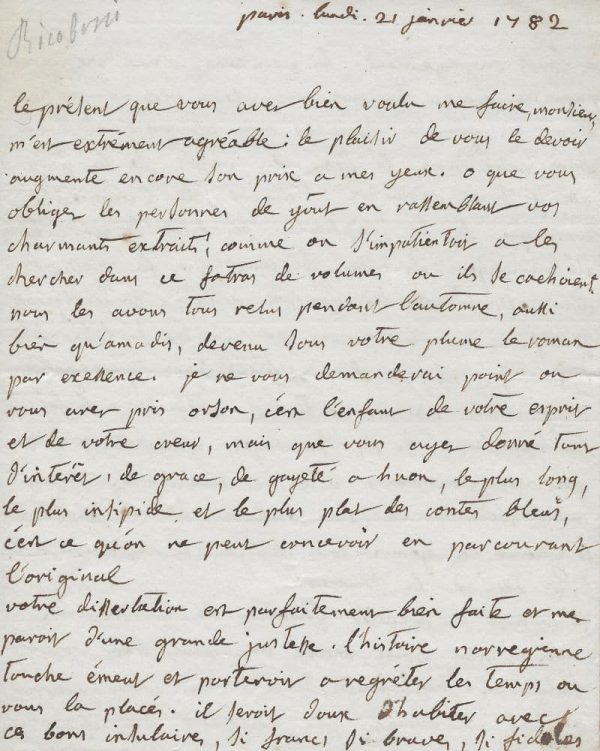 Ricoboni
paris. lundi. 21 janvier 1782
le présent que vous avez bien voulu me faire, monsieur,
m'est extrêment agréable: le plaisir de vous le devoir
augmente encore son prix a mes yeux. o que vous
obligez les personnes de goût en rassemblant vos
charmants extraits! comme on s'impatientoit a les
chercher dans ce fatras de volumes ou ils se cachoient.
nous les avons tous relus pendant l'automne, aussi
bien qu'amadis, devenu sous votre plume le roman
par exellence. je ne vous demanderai point ou
vous avez pris orson, c'est l'enfant de votre esprit
et de votre coeur, mais que vous ayez donné tant
d'intérêt, de grace, de gayeté a huon, le plus long,
le plus insipide et le plus plat des contes bleus,
c'est ce qu'on ne peut concevoir en parcourant
l'original
votre dissertation est parfaitement bien faite et me
paroit d'une grande justesse. l'histoire norvegienne
touche émeut et porteroit a regréter les temps ou
vous la placés. il seroit doux d'habiter avec
ces bons insulaires, si francs si braves, si fideles